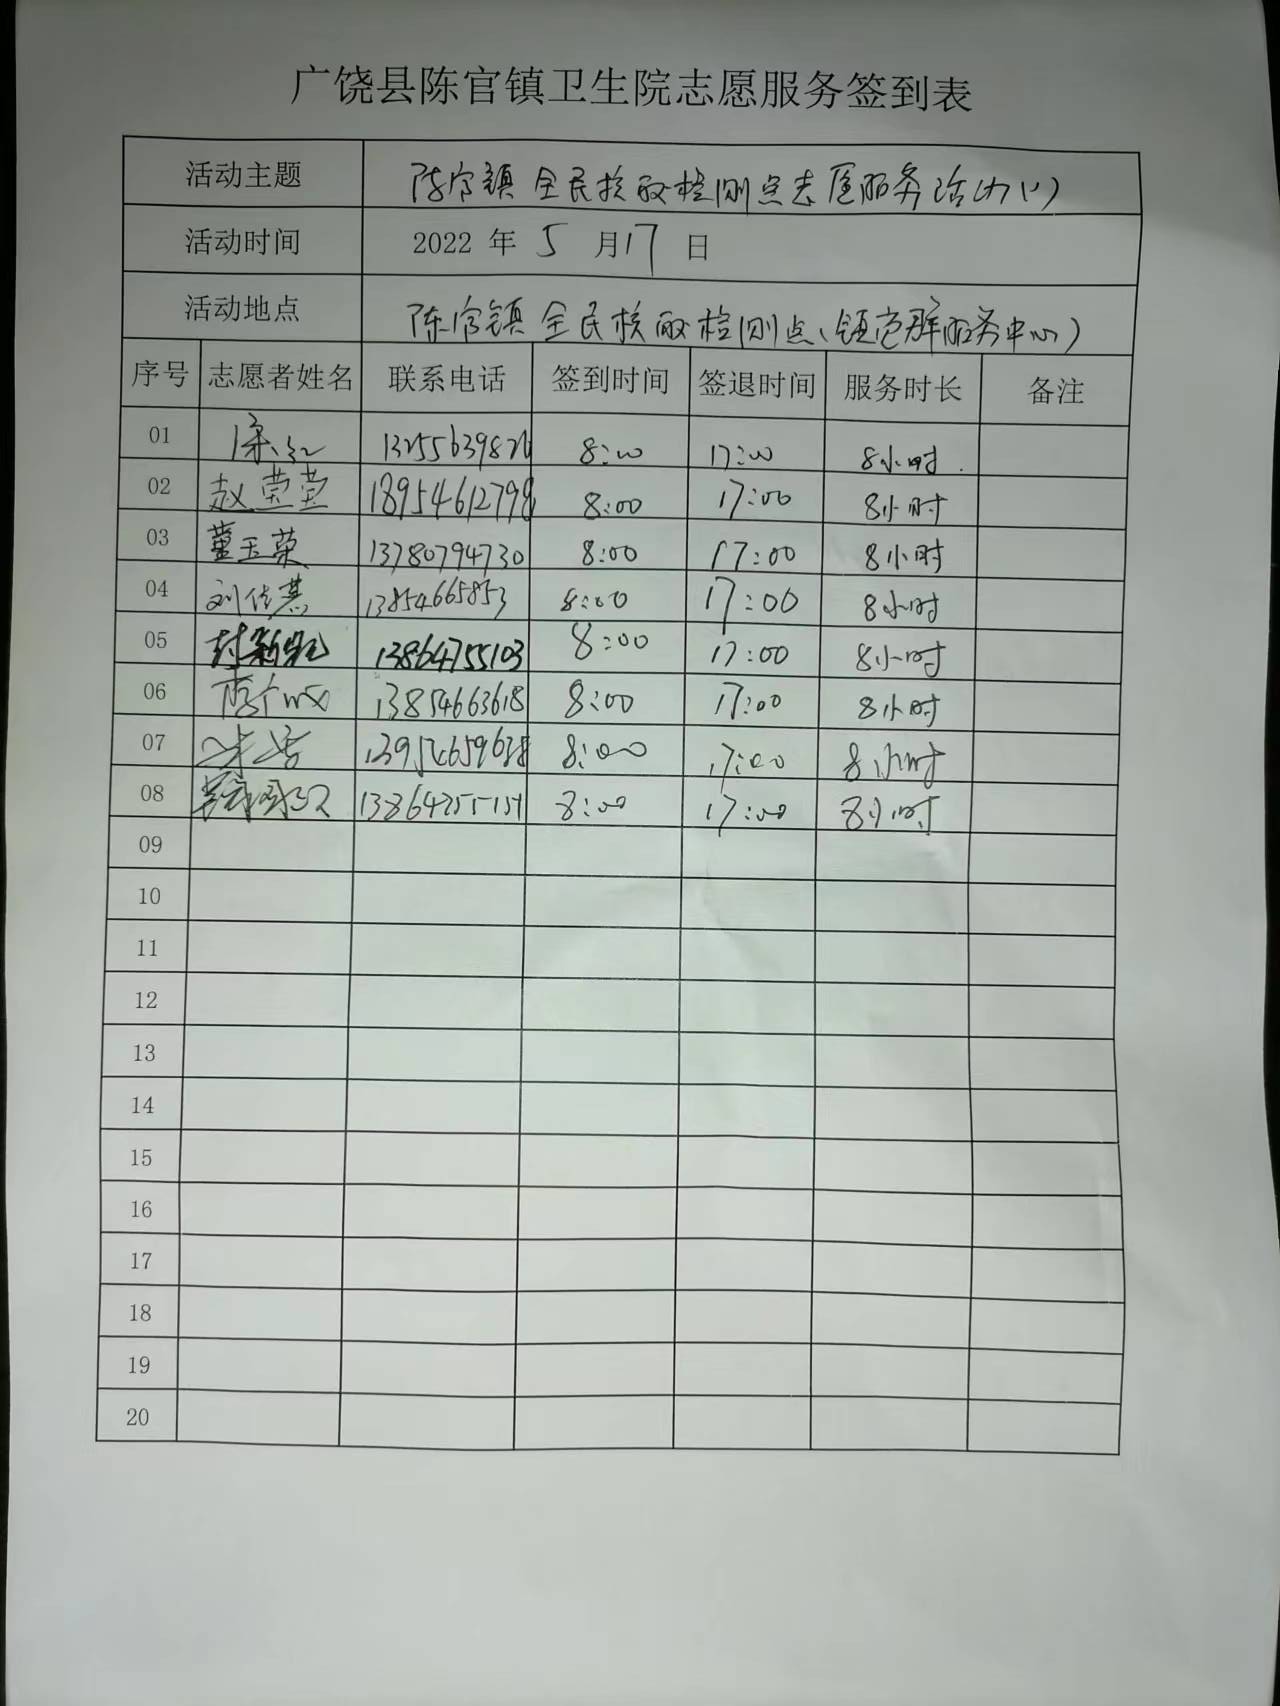 广饶县陈官镇卫生院志愿服务签到表
活动主题 陈官镇全民核酸检测点志愿服务活动(1)
活动时间 2022 年 5 月 17 日
活动地点 陈官镇全民核酸检测点(镇党群服务中心)
序号 志愿者姓名 联系电话 签到时间 签退时间 服务时长 备注
01 13255639826 8:00 17:00 8小时
02 赵萱萱 18954612798 8:00 17:00 8小时
03 董玉荣 13780794730 8:00 17:00 8小时
04 13854665853 8:00 17:00 8小时
05 13864755103 8:00 17:00 8小时
06 13854663618 8:00 17:00 8小时
07 8:00 17:00 8小时
08 8:00 17:00 8小时
09
10
11
12
13
14
15
16
17
18
19
20